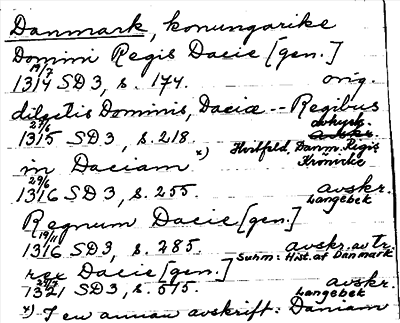 Danmark, konungarike
Domini Regis Dacie [gen.]
19/7
1314 SD 3, s. 174. orig.
dilectis Dominis, Daciæ -- Regibus
27/5 avtryck
1315 SD 3, s. 218. Hvitfeld. Danm. Regis
Krönicke
in Daciam x)
29/6
1316 SD 3, s. 255 avskr.
Langebek
Regnum Dacie [gen]
19/11
1316 SD 3, s. 285. avskr. av tr.
Suhm: Hist. af Danmark
rex Dacie [gen.]
1321 SD 3, s. 575. avskr.
Langebek
x) I en annan avskrift: Daniam